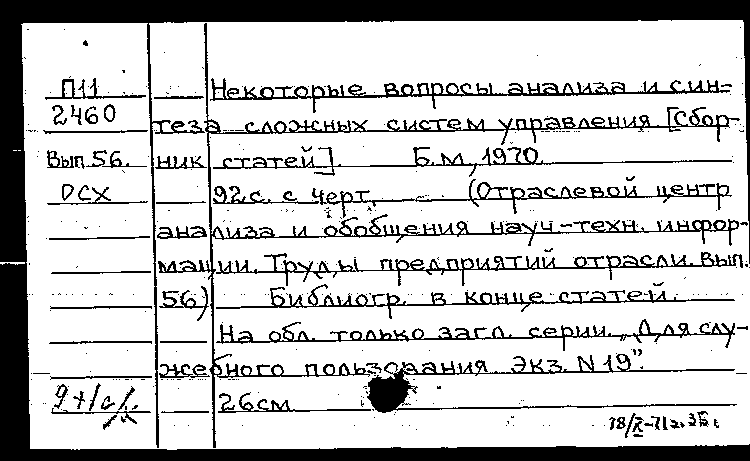 П11 Некоторые вопросы анализа и син-
2460 теза сложных систем управления [Сбор-
Вып 56. ник статей]. Б.м., 1970.
ОСХ 92 с. с черт. (Отраслевой центр
анализа и обобщения науч-техн. инфор-
мации. Труды предприятий отрасли. Вып.
56) Библиогр. в конце статей.
На обл. только загл. серии. „Для слу-
жебного пользования Экз. N 19”.
26см